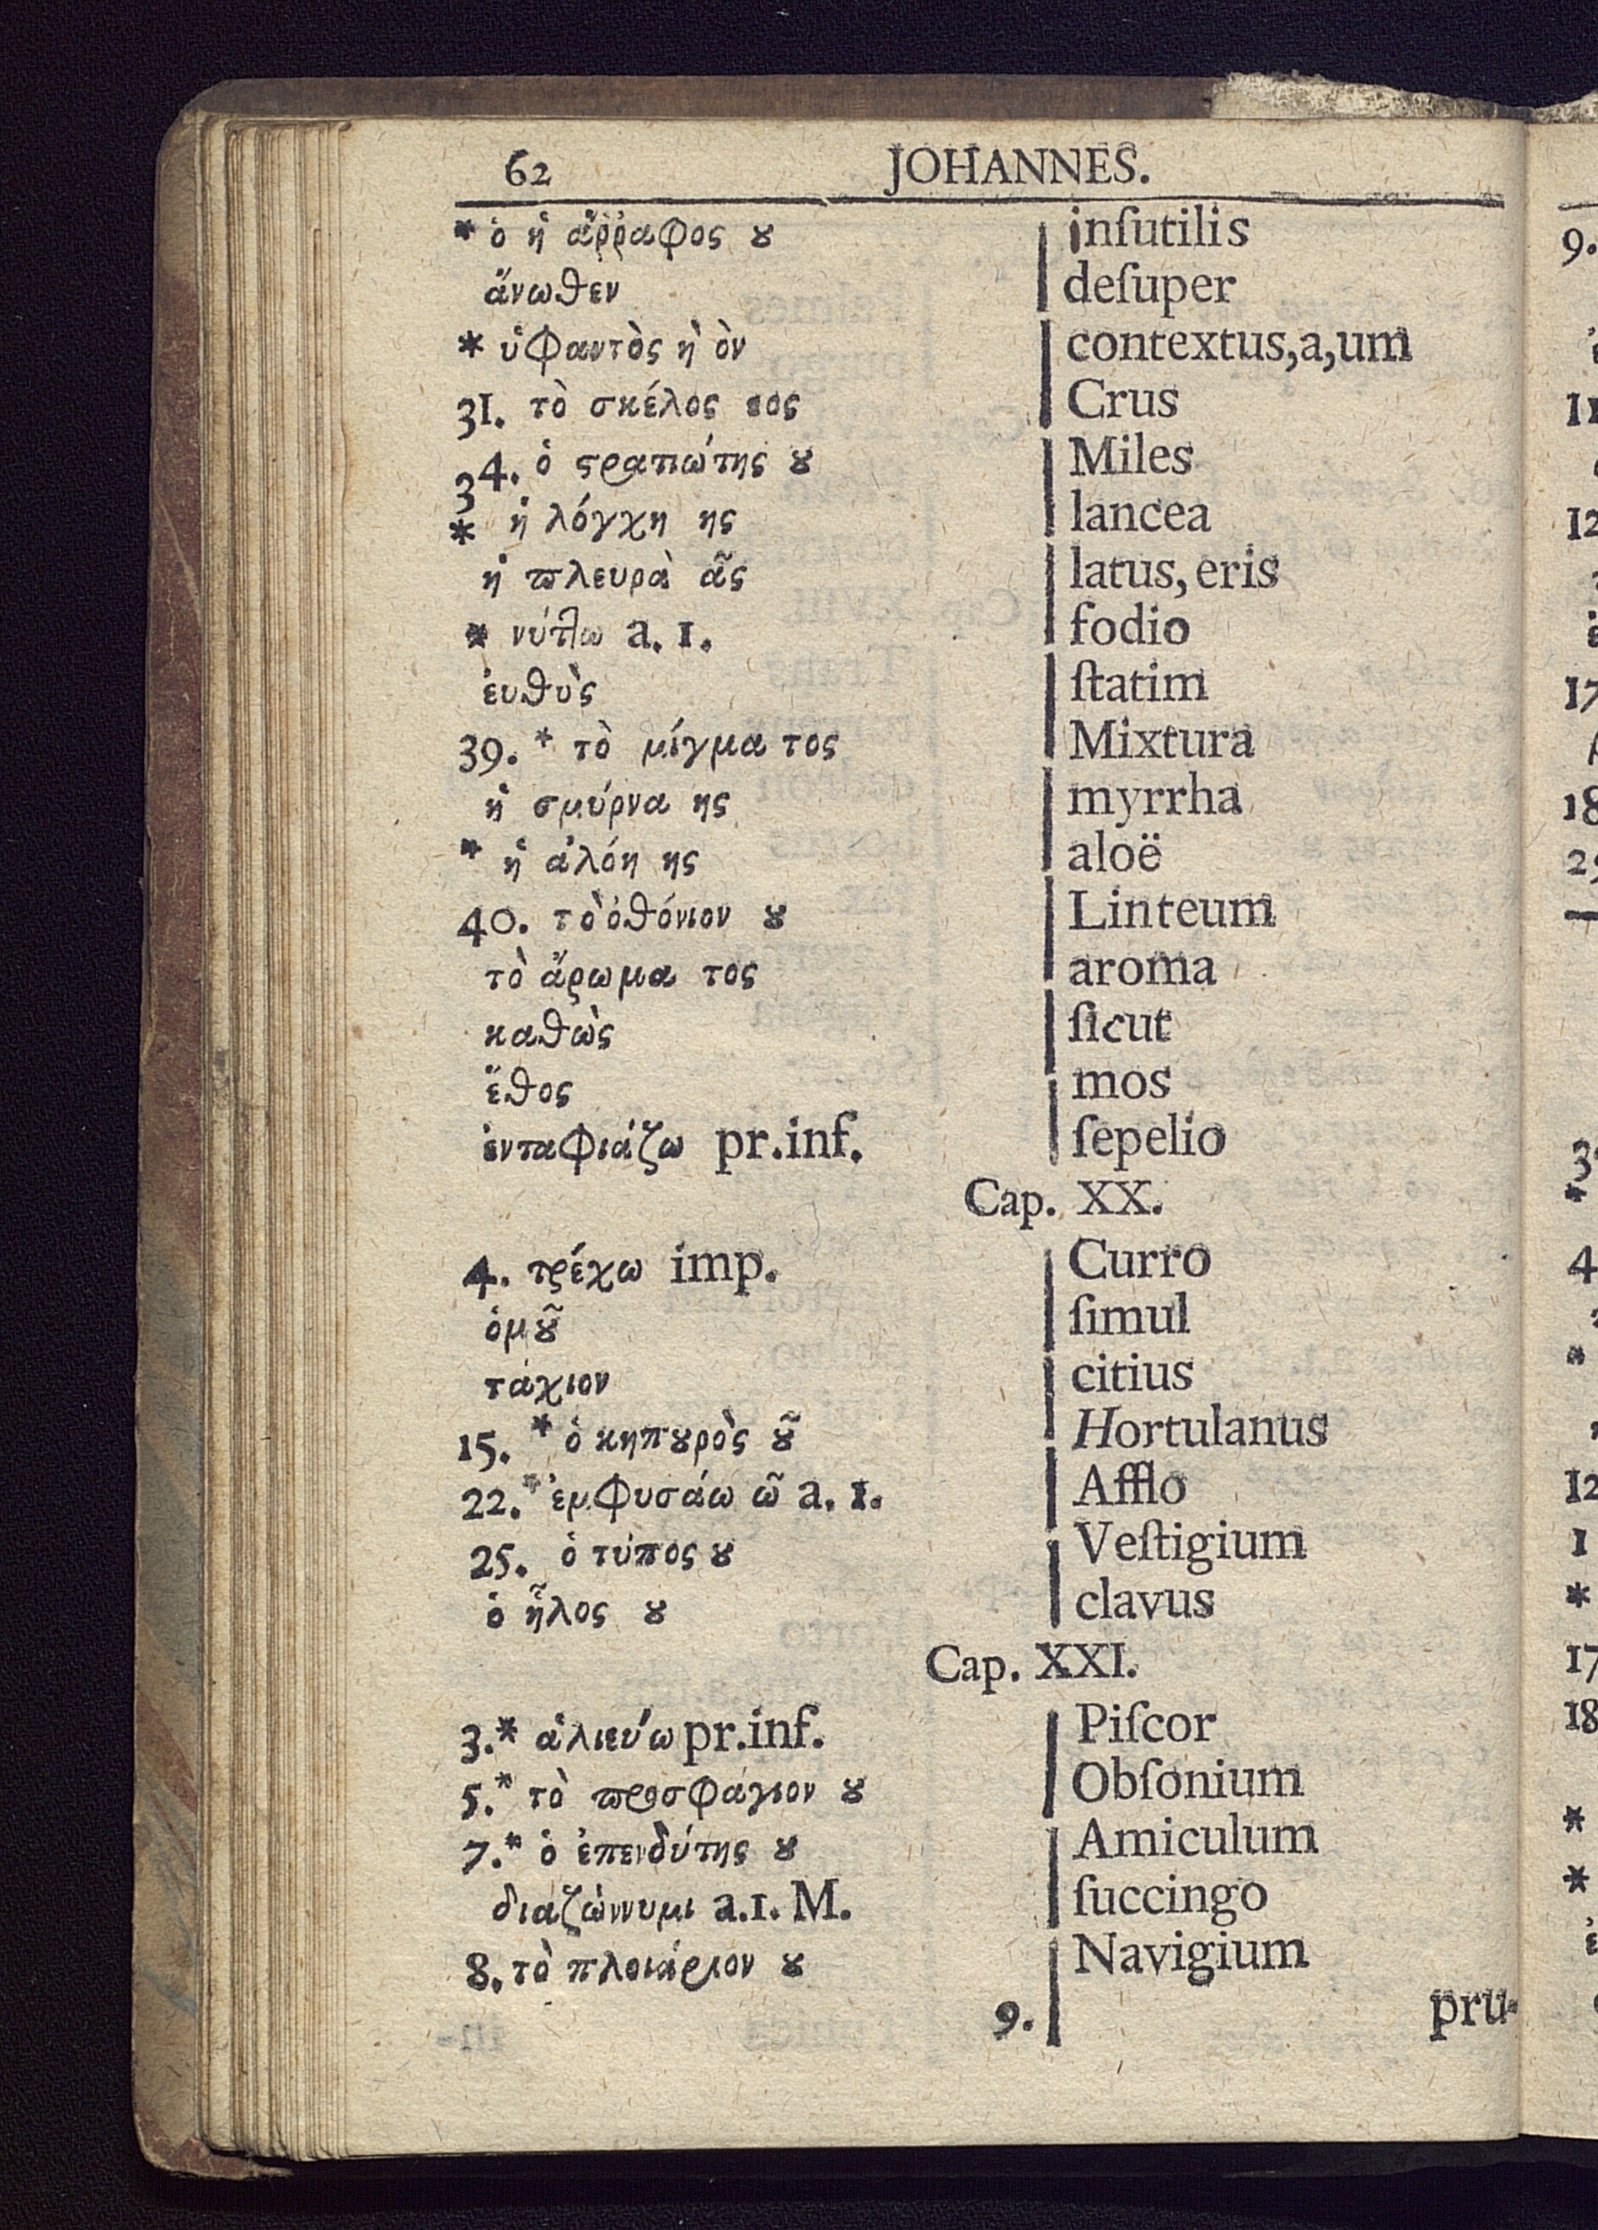 62 JOHANNES.
* ὁ ἡ ἄῤῥαφος ȣ inſutilis
ἄνωθεν deſuper
* ὑφαντὸς ὴ ὸν contextus,a,um
31. τὸ σκέλος εος Crus
34. ὁ ϛρατιώτης ȣ Miles
* ἡ λόγχη ης lancea
ἡ πλευρὰ ᾶς latus, eris
* νύπλω a. 1. fodio
ἐυθὺς ſtatim
39. * τὸ μίγμα τος Mixtura
ἡ σμύρνα ης myrrha
* ἡ ἀλόη ης aloë
40. τὸ ὀθόνιον ȣ Linteum
τὸ ἄρωμα τος aroma
καθὼς ſicut
ἔθος mos
ἐνταφιάζω pr.inf. ſepelio
Cap. XX.
4. τρέχω imp. Curro
ὁμȣ͂ ſimul
τάχιον citius
15. * ὁ κηπȣρὸς ȣ͂ Hortulanus
22.* ἐμφυσάω ῶ a. 1. Afflo
25. ὁ τύπος ȣ Veſtigium
ὁ ἧλος ȣ clavus
Cap. XXI.
3.* ἁλιεύω pr.inf. Piſcor
5.* τὸ προσφάγιον ȣ Obſonium
7.* ὁ ἐπενδύτης ȣ Amiculum
διαζώννυμι a.1. M. ſuccingo
8. τὸ πλοιάριον ȣ Navigium
9. pru-